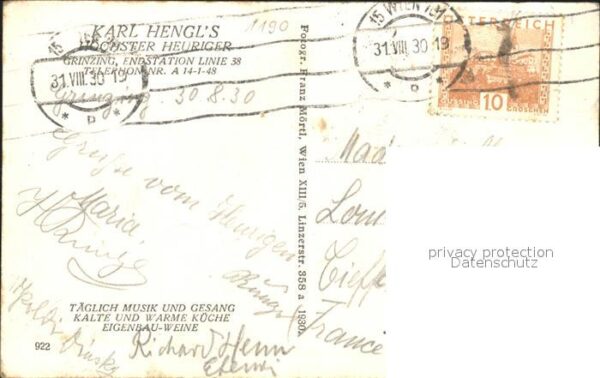 1190
KARL HENGL'S
HÖCHSTER HEURIGER
GRINZING, ENDSTATION LINIE 38
TELEPHON NR. A 14-1-48
31.VIII.30
15 WIEN
31.VIII.30 19
ÖSTERREICH
10
GROSCHEN
Grinzing 30.8.30
Grüße vom Heurigen
Maria
TÄGLICH MUSIK UND GESANG
KALTE UND WARME KÜCHE
EIGENBAU-WEINE
922
Richard Henn
Fotogr. Franz Mörtl, Wien XIII/5, Linzerstr. 358 a 1930.
Mad
France
privacy protection
Datenschutz